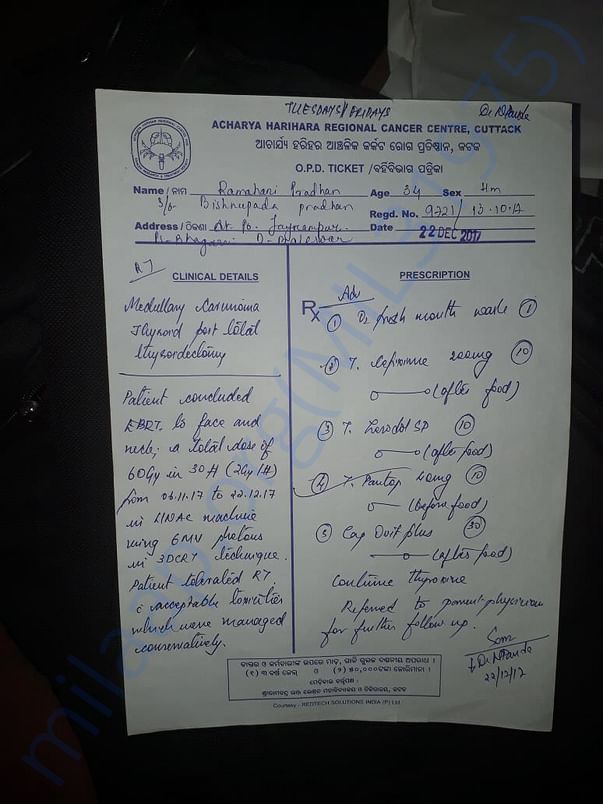 TUESDAYS/FRIDAYS
ACHARYA HARIHARA REGIONAL CANCER CENTRE, CUTTACK
ଆଚାର୍ଯ୍ୟ ହରିହର ଆଞ୍ଚଳିକ କର୍କଟ ରୋଗ ପ୍ରତିଷ୍ଠାନ, କଟକ
O.P.D. TICKET / ବହିର୍ବିଭାଗ ପତ୍ରିକା
Name / ନାମ Ramahari Pradhan Age 34 Sex Hm
S/o- Bishnupada pradhan Regd. No. 9721/13.10.17
Address / ଠିକଣା At. Po. Jayrampur Date 22 DEC 2017
RT
CLINICAL DETAILS
Medullary Carcinoma
Thyroid post total
thyroidectomy
Patient concluded
EBRT to face and
neck; a total dose of
60Gy in 30# (2Gy/#)
from 06.11.17 to 22.12.17
in LINAC machine
using 6MV photons
in 3DCRT technique.
Patient tolerated RT
c acceptable toxicities
which were managed
conservatively.
PRESCRIPTION
Rx Adv
① fresh mouth wash ①
② T. Cefixime 200mg ⑩
(after food)
③ T. Zerodol SP ⑩
(after food)
④ T. Pantop 40mg ⑩
(before food)
⑤ Cap plus ㉚
(after food)
Continue Thyroxine
Referred to parent physician
for further follow up.
22/12/17
Courtesy - REDTECH SOLUTIONS INDIA (P) Ltd